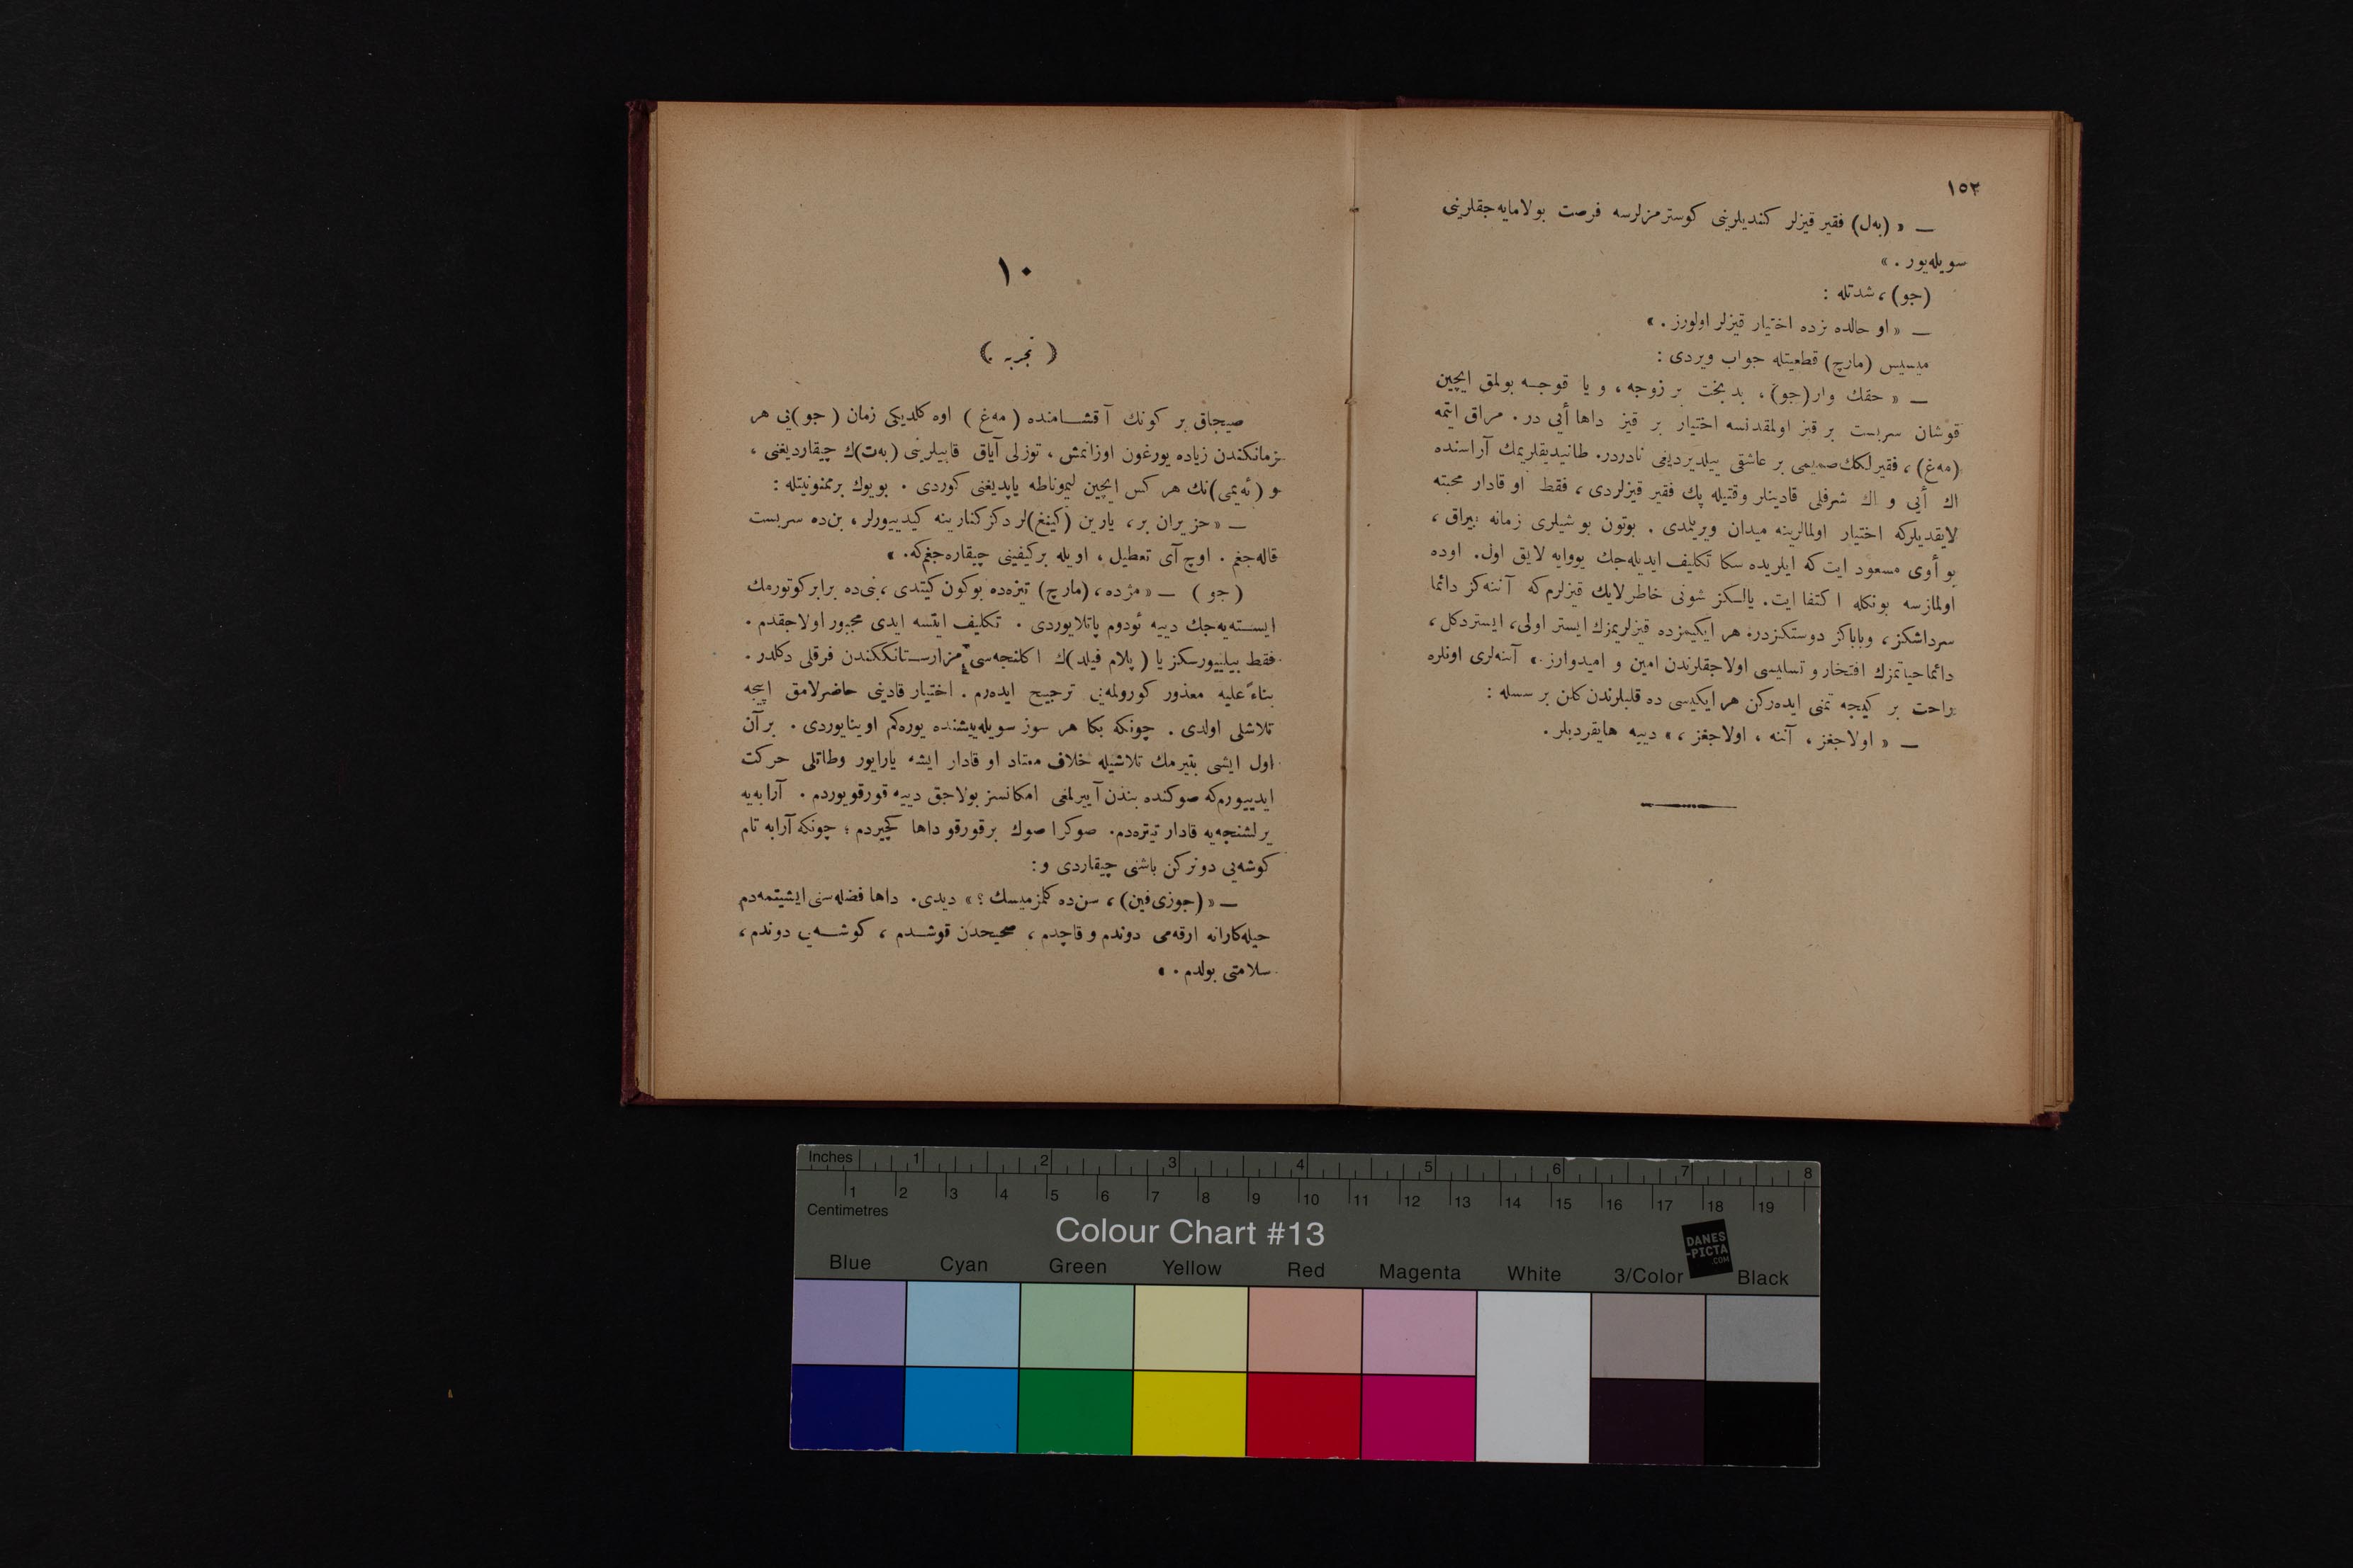 ١٥٢
— « (به‌ل) فقیر قیزلر کندیلرینی کوسترمزلرسه فرصت بولامایه‌جقلرینی
سویله‌یور . »
(جو) ، شدتله :
— « او حالده بزده اختیار قیزلر اولورز . »
میسیس (مارچ) قطعیتله جواب ویردی :
— « حقك وار (جو) ، بدبخت بر زوجه ، و یا قوجه بولمق ایچین
قوشان سربست بر قیز اولمقدنسه اختیار بر قیز داها أیی در . مراق ایتمه
(مه‌غ) ، فقیرلكك صمیمی بر عاشقی ییلدیردیغی نادردر. طانیدیقلریمك آراسنده
اك أیی و اك شرفلی قادینلر وقتیله پك فقیر قیزلردی ، فقط او قادار محبته
لایقدیلرکه اختیار اولمالرینه میدان ویریلمدی . بوتون بو شیلری زمانه بیراق ،
بو أوی مسعود ایت که ایلریده سکا تکلیف ایدیله‌جك یووایه لایق اول. اوده
اولمازسه بونکله اکتفا ایت. یالکز شونی خاطرلایك قیزلرم که آننه‌کز دائما
سرداشکز ، وباباکز دوستکزدر. هر ایکیمزده قیزلریمزك ایستر اولی، ایستردکل ،
دائما حیاتمزك افتخار و تسلیسی اولاجقلرندن امین و امیدوارز . » آننه‌لری اونلره
راحت بر کیجه تمنی ایده‌رکن هر ایکیسی ده قلبلرندن کلن بر سسله :
— « اولاجغز ، آننه ، اولاجغز ، » دییه هایقردیلر .
١٠
( تجربه )
صیجاق بر کونك آقشامنده ( مه‌غ ) اوه کلدیکی زمان ( جو )یی هر
زمانکندن زیاده یورغون اوزانمش ، توزلی آیاق قابیلرینی (به‌ت)ك چیقاردیغنی ،
و (ئه‌یمی)نك هر کس ایچین لیموناطه یاپدیغنی کوردی . بویوك برممنونیتله :
— « حزیران بر ، یارین (کینغ)لر دکز کنارینه کیدییورلر ، بن‌ده سربست
قاله‌جغم . اوچ آی تعطیل ، اویله برکیفینی چیقاره‌جغم‌که. »
( جو ) — « مژده ، (مارچ) تیزه‌ده بوکون کیتدی ، بنی‌ده برابر کوتورمك
ایسته‌یه‌جك دییه ئودوم پاتلایوردی . تکلیف ایتسه ایدی مجبور اولاجقدم .
فقط بیلییورسکز یا ( پلام فیلد)ك اکلنجه‌سی مزارستانککندن فرقلی دکلدر .
بناءً علیه معذور کورولمه‌یی ترجیح ایده‌رم . اختیار قادینی حاضرلامق اییجه
تلاشلی اولدی . چونکه بکا هر سوز سویله‌ییشنده یوره‌کم اوینایوردی . بر آن
اول ایشی بتیرمك تلاشیله خلاف معتاد او قادار ایشه یارایور وطاتلی حرکت
ایدییورم‌که صوکنده بندن آییرلمغی امکانسز بولاجق دییه قورقویوردم . آرابه‌یه
یرلشنجه‌یه قادار تیتره‌دم. صوکرا صوك بر قورقو داها کچیردم ؛ چونکه آرابه تام
کوشه‌یی دونرکن باشنی چیقاردی و :
— « (جوزی‌فین) ، سن‌ده کلمزمیسك ؟ » دیدی. داها فضله‌سنی ایشیتمه‌دم
حیله‌کارانه ارقه‌می دوندم و قاچدم ، صحیحدن قوشدم ، کوشه‌یی دوندم ،
سلامتی بولدم . »
Inches 1 2 3 4 5 6 7 8
1 2 3 4 5 6 7 8 9 10 11 12 13 14 15 16 17 18 19
Centimetres
Colour Chart #13
DANES
-PICTA
.COM
Blue Cyan Green Yellow Red Magenta White 3/Color Black